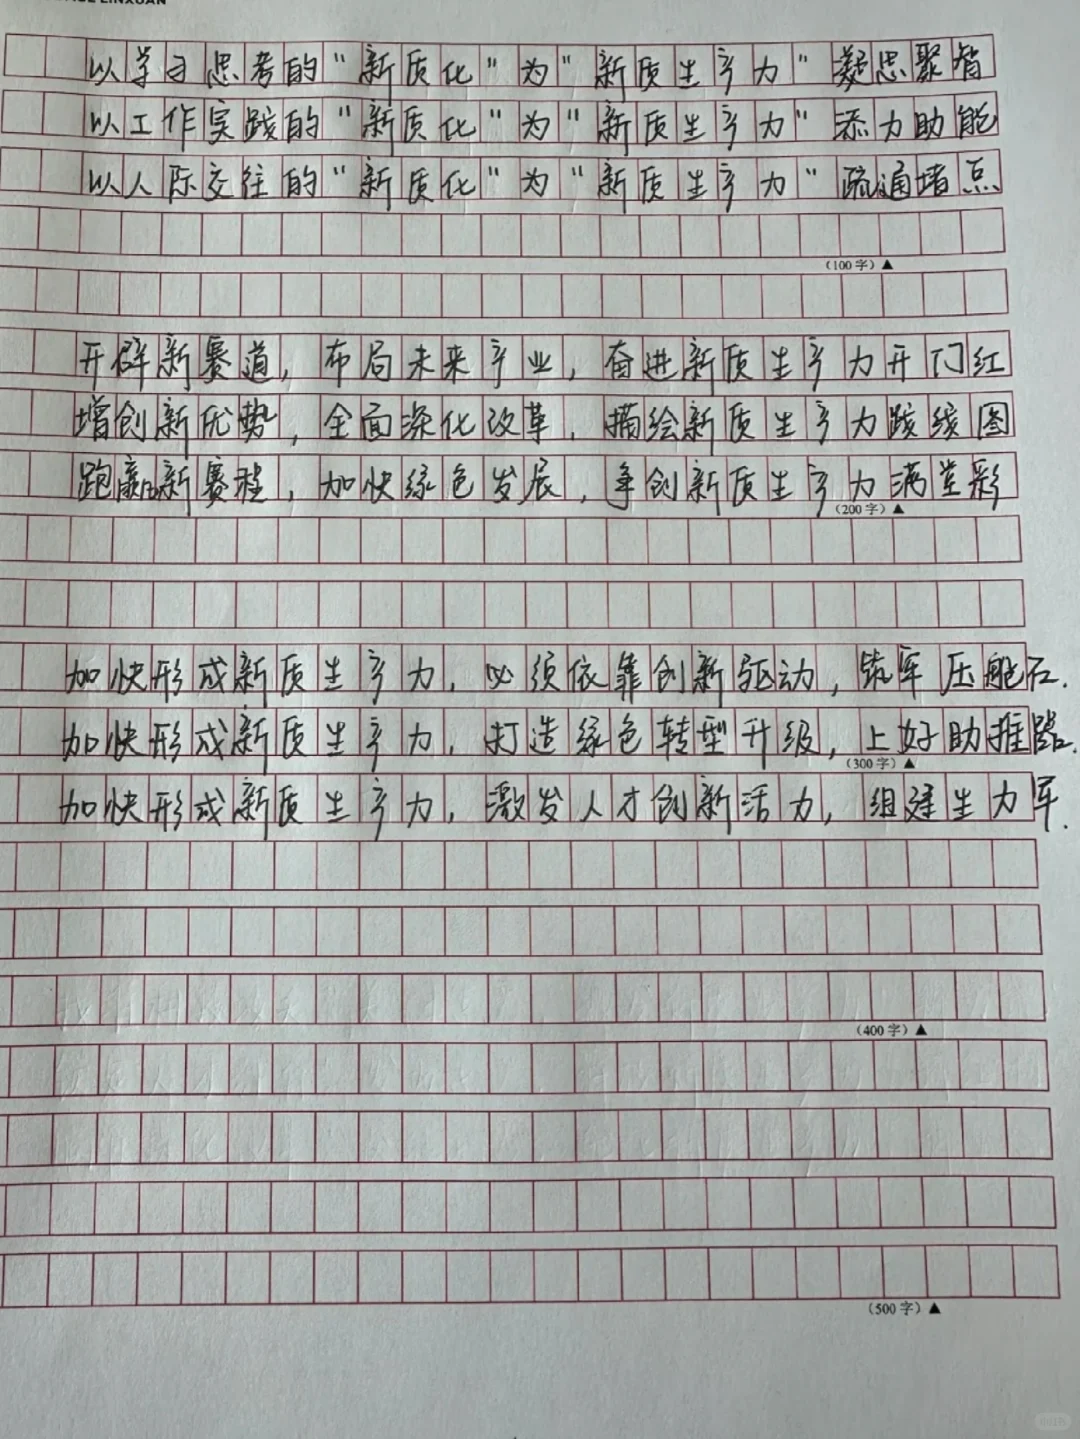 以学习思考的"新质化"为"新质生产力"凝思聚智
以工作实践的"新质化"为"新质生产力"添力助能
以人际交往的"新质化"为"新质生产力"疏通堵点
(100字)▲
开辟新赛道,布局未来产业,奋进新质生产力开门红
增创新优势,全面深化改革,描绘新质生产力路线图
跑赢新赛程,加快绿色发展,争创新质生产力满堂彩
(200字)▲
加快形成新质生产力,必须依靠创新驱动,筑牢压舱石.
加快形成新质生产力,打造绿色转型升级,上好助推器.
(300字)▲
加快形成新质生产力,激发人才创新活力,组建生力军.
(400字)▲
(500字)▲